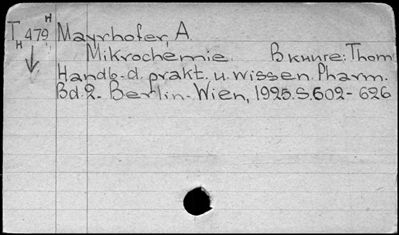 T 479 H Mayrhofer, A
H Mikrochemie. В книге: Thom
Handb. d. prakt. u. wissen. Pharm.
Bd. 2. Berlin-Wien, 1925. S. 602-626